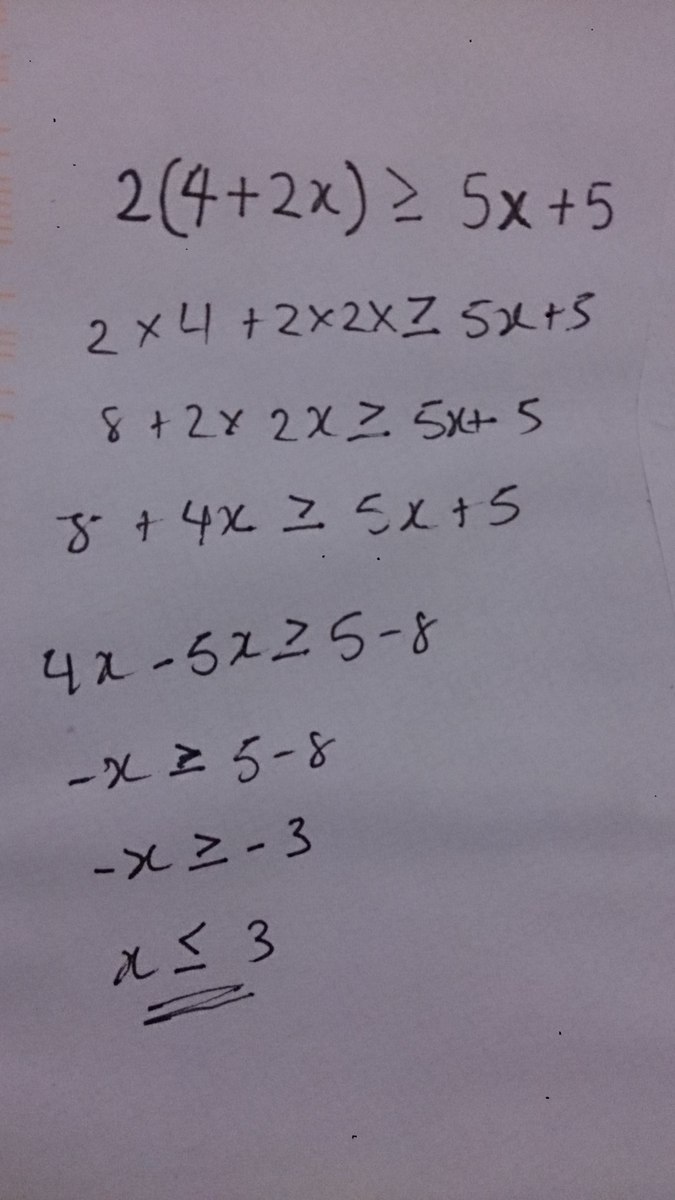 2(4+2x) ≥ 5x+5
2×4+2×2x ≥ 5x+5
8+2×2x ≥ 5x+5
8+4x ≥ 5x+5
4x-5x ≥ 5-8
-x ≥ 5-8
-x ≥ -3
x ≤ 3